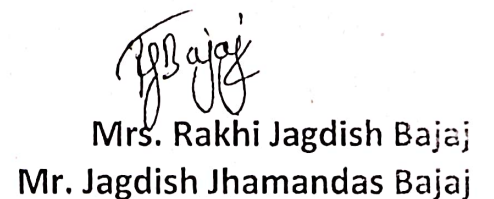 RJBajaj
Mrs. Rakhi Jagdish Bajaj
Mr. Jagdish Jhamandas Bajaj